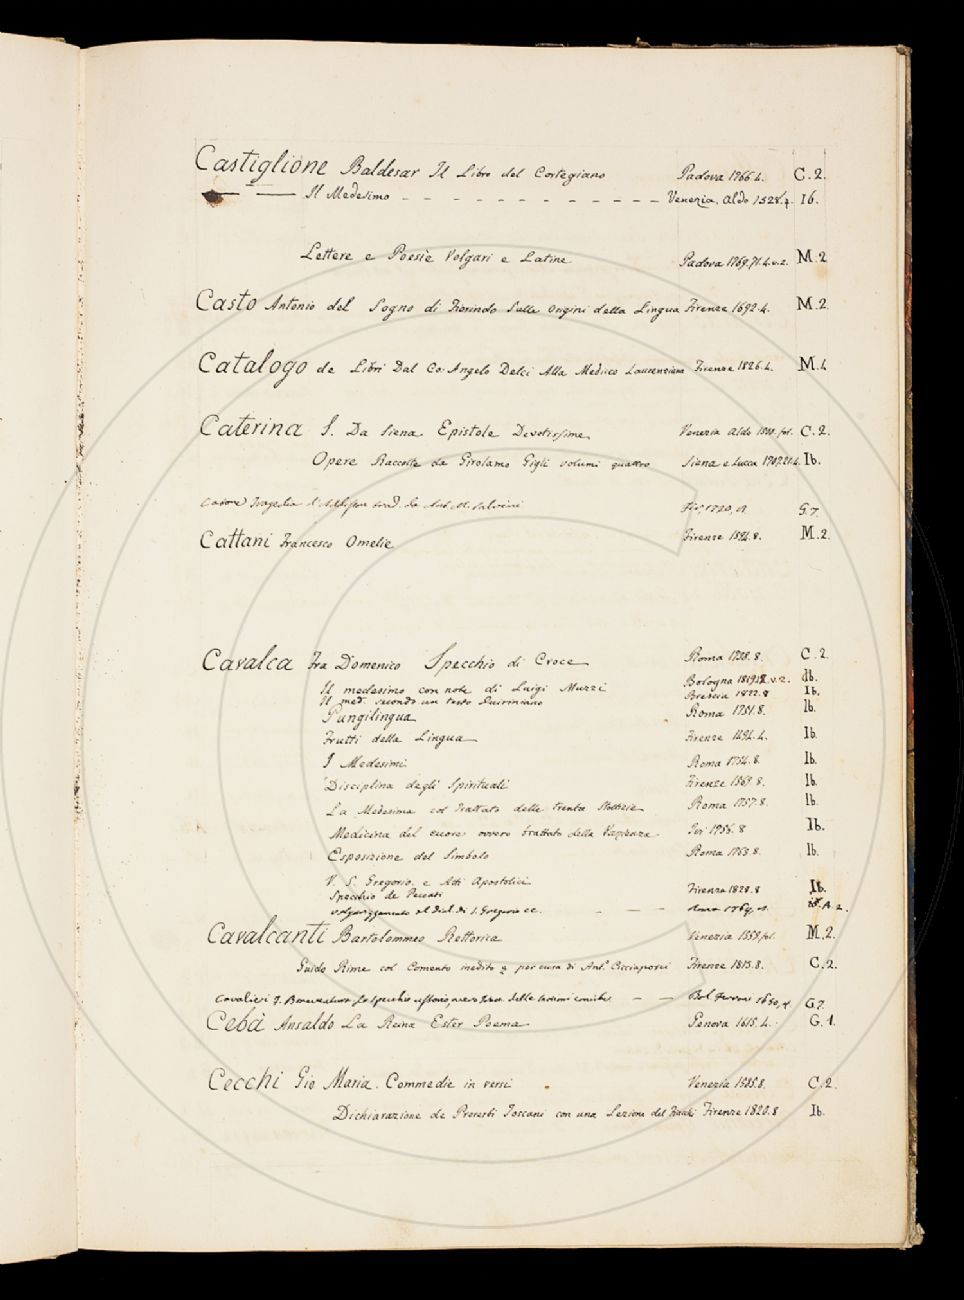 Castiglione Baldesar Il Libro del Cortegiano Padova 1766.4. C.2.
Il Medesimo - - - - - - - - - - - - - Venezia. Aldo 1528.f. Ib.
Lettere e Poesie Volgari e Latine Padova 1769.71.4.v.2. M.2
Casto Antonio del Sogno di Fiorindo Sulle Origini della Lingua Firenze 1692.4. M.2.
Catalogo de Libri Dal Co: Angelo Delci Alla Mediceo Laurenziana Firenze 1826.4. M.1.
Caterina S. Da Siena Epistole Devotissime Venezia Aldo fol. C.2.
Opere Raccolte da Girolamo Gigli volumi quattro Siena e Lucca 1707.21.4. Ib.
Catone Tragedia d'Addisson trad. da Ant. M. Salvini Fir. G.7.
Cattani Francesco Omelie Firenze M.2.
Cavalca Fra Domenico Specchio di Croce Roma 1738.8. C.2
Il medesimo con note di Luigi Muzzi Bologna v.2. Ib.
Il med. secondo un testo Quiriniano Brescia 1822.8 Ib.
Pungilingua Roma 1751.8. Ib.
Frutti della Lingua Firenze 1494.4. Ib.
I Medesimi Roma 1754.8. Ib.
Disciplina degli Spirituali Firenze 1569.8. Ib.
La Medesima col Trattato delle trenta Stoltizie Roma 1757.8. Ib.
Medicina del cuore ovvero trattato della Pazienza Ivi 1756.8 Ib.
Esposizione del Simbolo Roma 1763.8. Ib.
V. S. Gregorio. e Atti Apostolici
Specchio de Peccati Firenze 1828.8 Ib.
volgarizzamento al Dial. di S. Gregorio ec. - — — Roma 1764, A.2.
Cavalcanti Bartolommeo Rettorica Venezia fol. M.2.
Guido Rime col Comento inedito e per cura di Ant.o Cicciaporci Firenze 1813.8. C.2.
Cavalieri F. Bonaventura, Lo Specchio ustorio, ovvero tratt. delle settioni coniche — — Bol. Ferroni 1650, 4. G.7.
Cebà Ansaldo La Reina Ester Poema Genova 1615.4. G.1.
Cecchi Gio Maria. Commedie in versi Venezia 1585.8. C.2.
Dichiarazione de Proverbi Toscani con una Lezione del Firenze 1820.8 Ib.